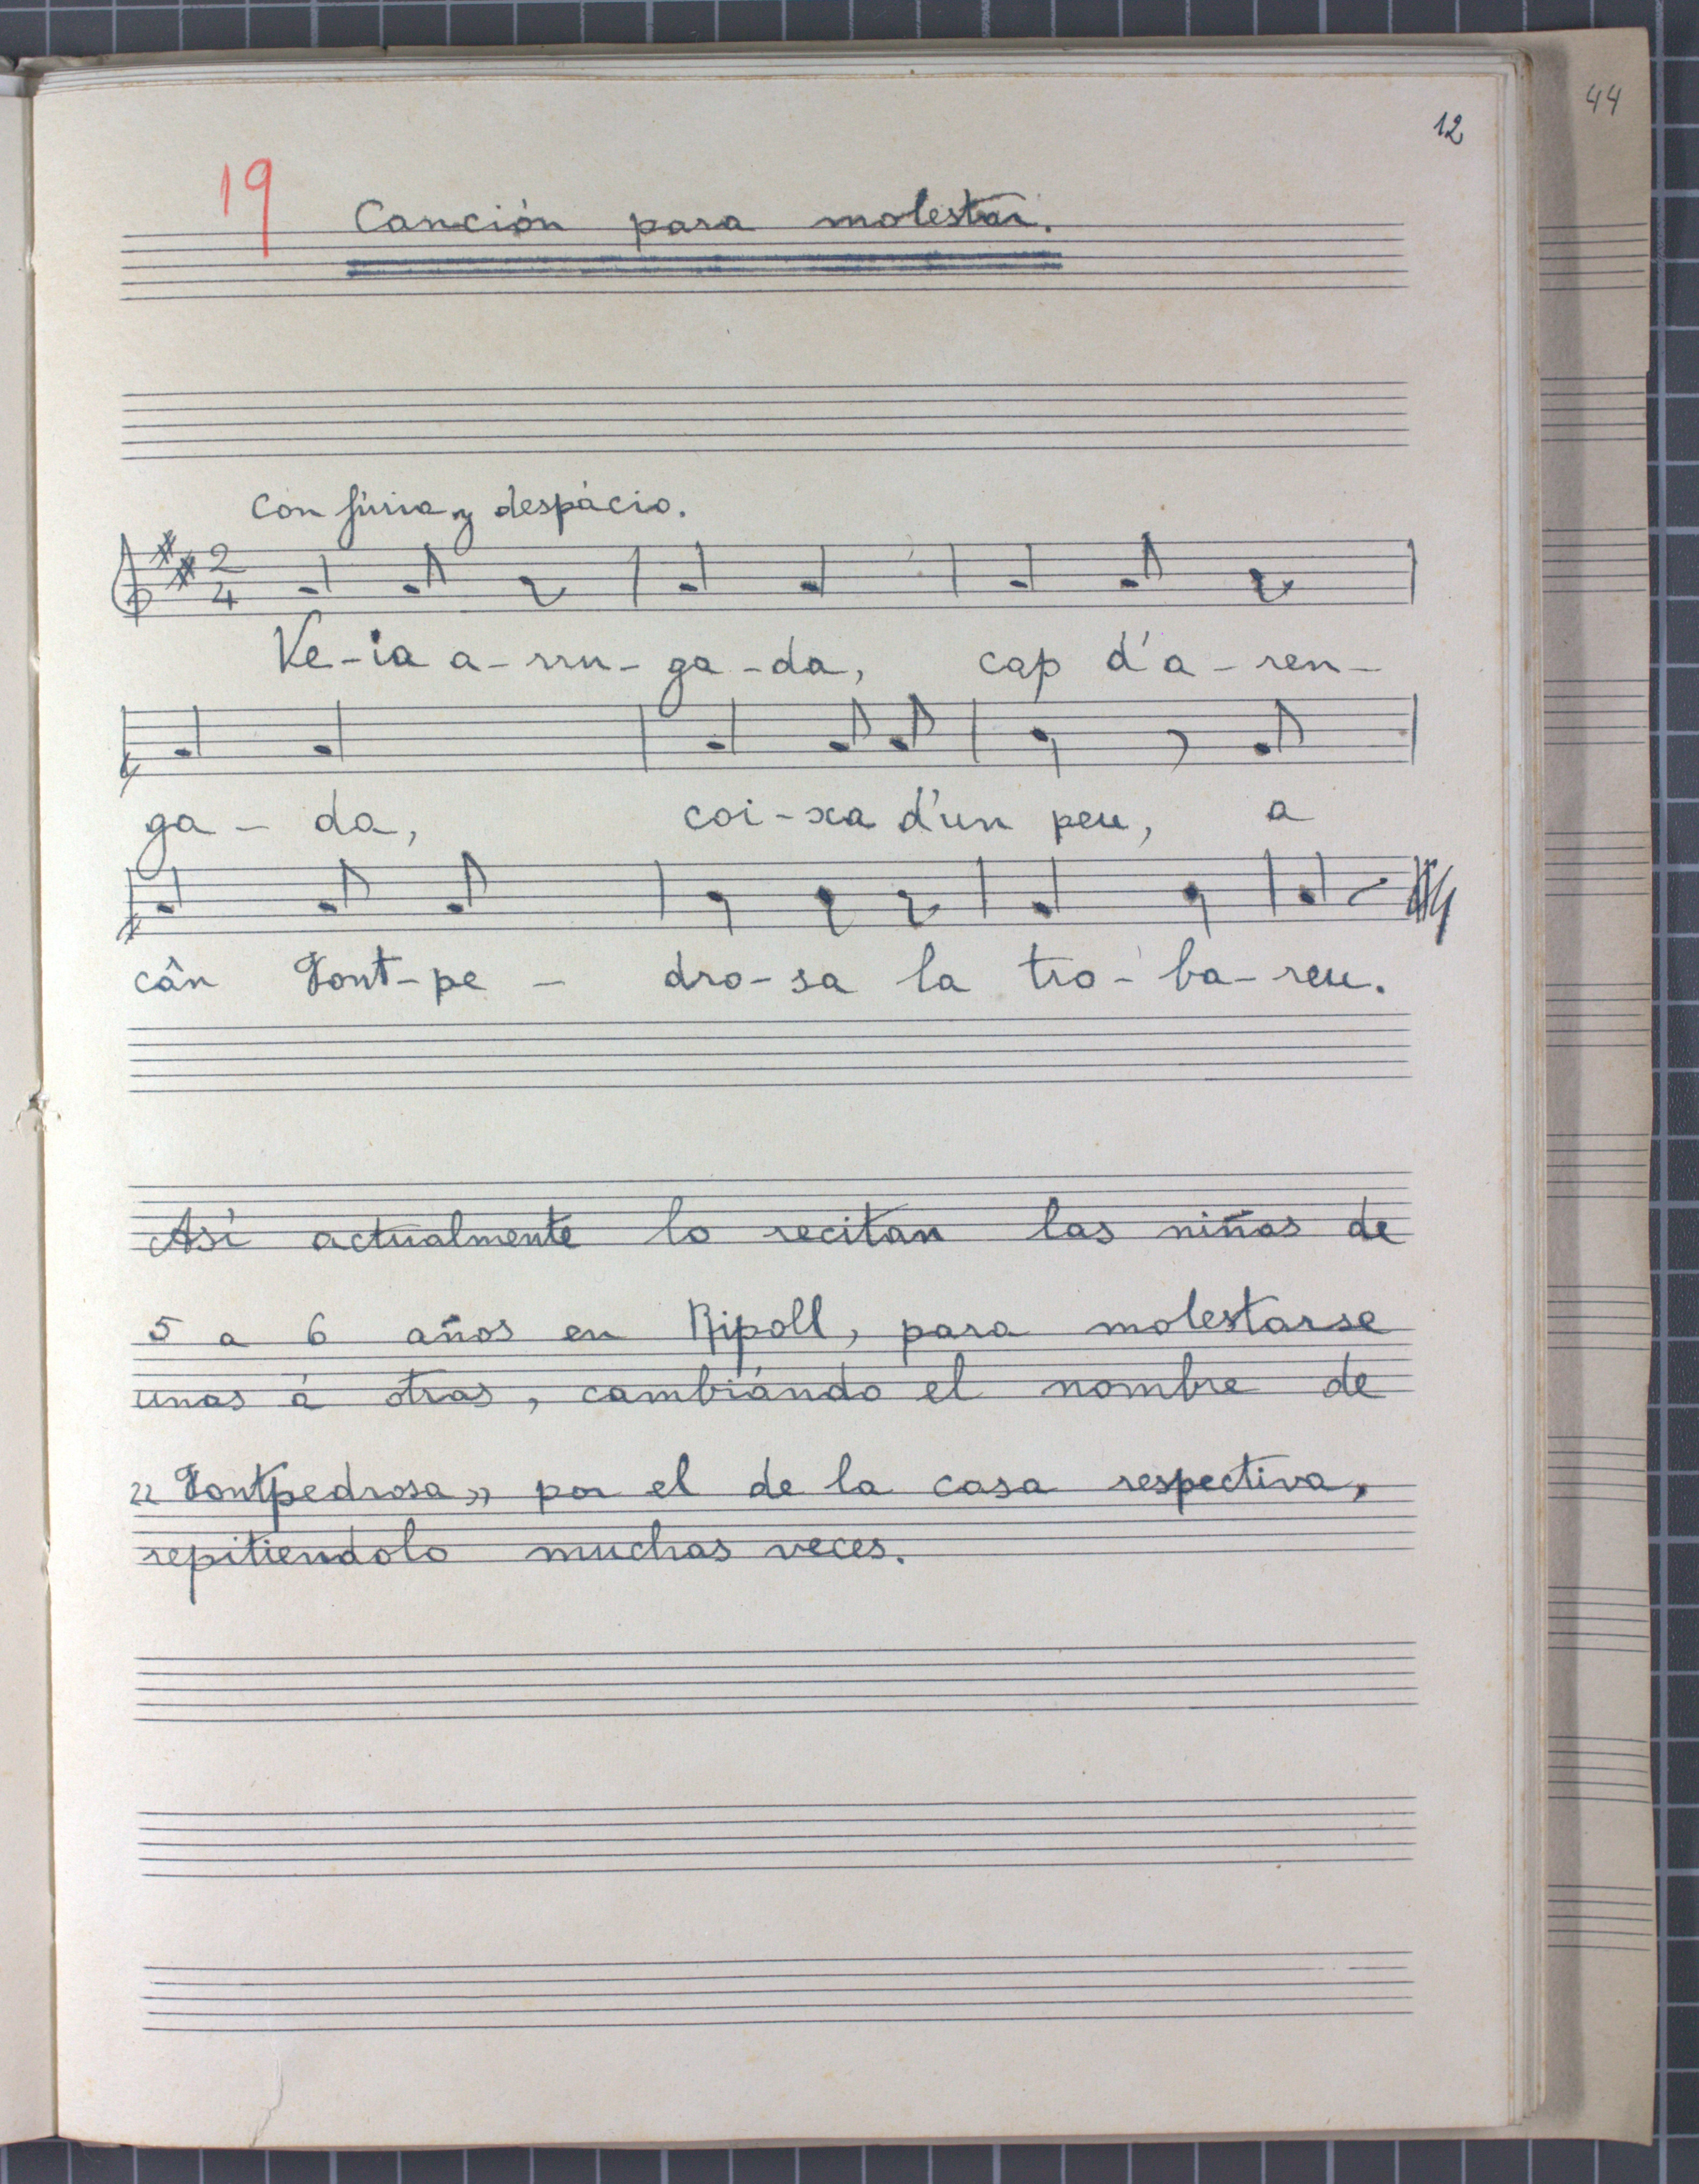 44
12
19
Canción para molestar.
Con fúria y despácio.
2
4
Ve-ia a-rru-ga-da, cap d'a-ren-
ga-da, coi-xa d'un peu, a
cân Font-pe- dro-sa la tro-ba-reu.
Así actualmente lo recitan las niñas de
5 a 6 años en Ripoll, para molestarse
unas á otras, cambiándo el nombre de
"Fontpedrosa" por el de la casa respectiva,
repitiendolo muchas veces.